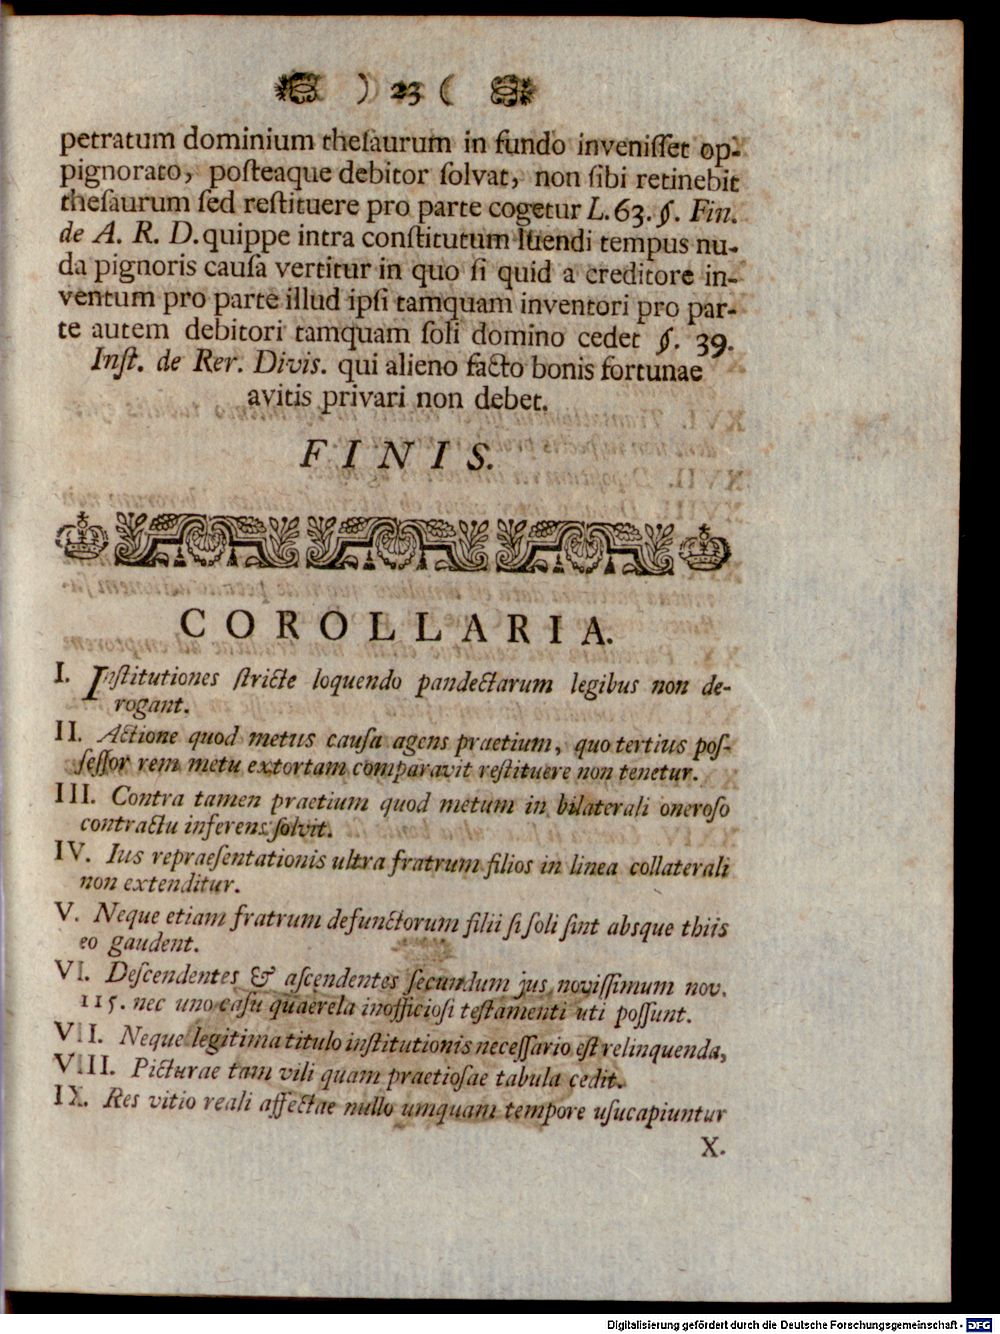 ) 23 (
petratum dominium theſaurum in fundo inveniſſet op-
pignorato, poſteaque debitor ſolvat, non ſibi retinebit
theſaurum ſed reſtituere pro parte cogetur L. 63. §. Fin.
de A. R. D. quippe intra conſtitutum luendi tempus nu-
da pignoris cauſa vertitur in quo ſi quid a creditore in-
ventum pro parte illud ipſi tamquam inventori pro par-
te autem debitori tamquam ſoli domino cedet §. 39.
Inſt. de Rer. Divis. qui alieno facto bonis fortunae
avitis privari non debet.
FINIS.
COROLLARIA.
I. Inſtitutiones ſtricte loquendo pandectarum legibus non de-
rogant.
II. Actione quod metus cauſa agens praetium, quo tertius poſ-
ſeſſor rem metu extortam comparavit reſtituere non tenetur.
III. Contra tamen praetium quod metum in bilaterali oneroſo
contractu inferens ſolvit.
IV. Ius repraeſentationis ultra fratrum filios in linea collaterali
non extenditur.
V. Neque etiam fratrum defunctorum filii ſi ſoli ſint absque thiis
eo gaudent.
VI. Deſcendentes & aſcendentes ſecundum jus noviſſimum nov.
115. nec uno caſu quaerela inofficioſi teſtamenti uti poſſunt.
VII. Neque legitima titulo inſtitutionis neceſſario eſt relinquenda,
VIII. Picturae tam vili quam praetioſae tabula cedit.
IX. Res vitio reali affectae nullo umquam tempore uſucapiuntur
X.
Digitalisierung gefördert durch die Deutsche Forschungsgemeinschaft - DFG